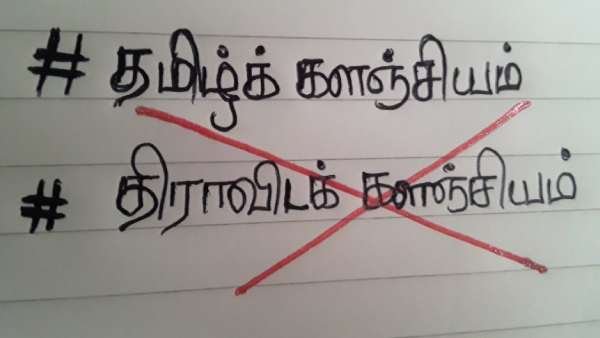 # தமிழ்க் களஞ்சியம்
# திராவிடக் களஞ்சியம்